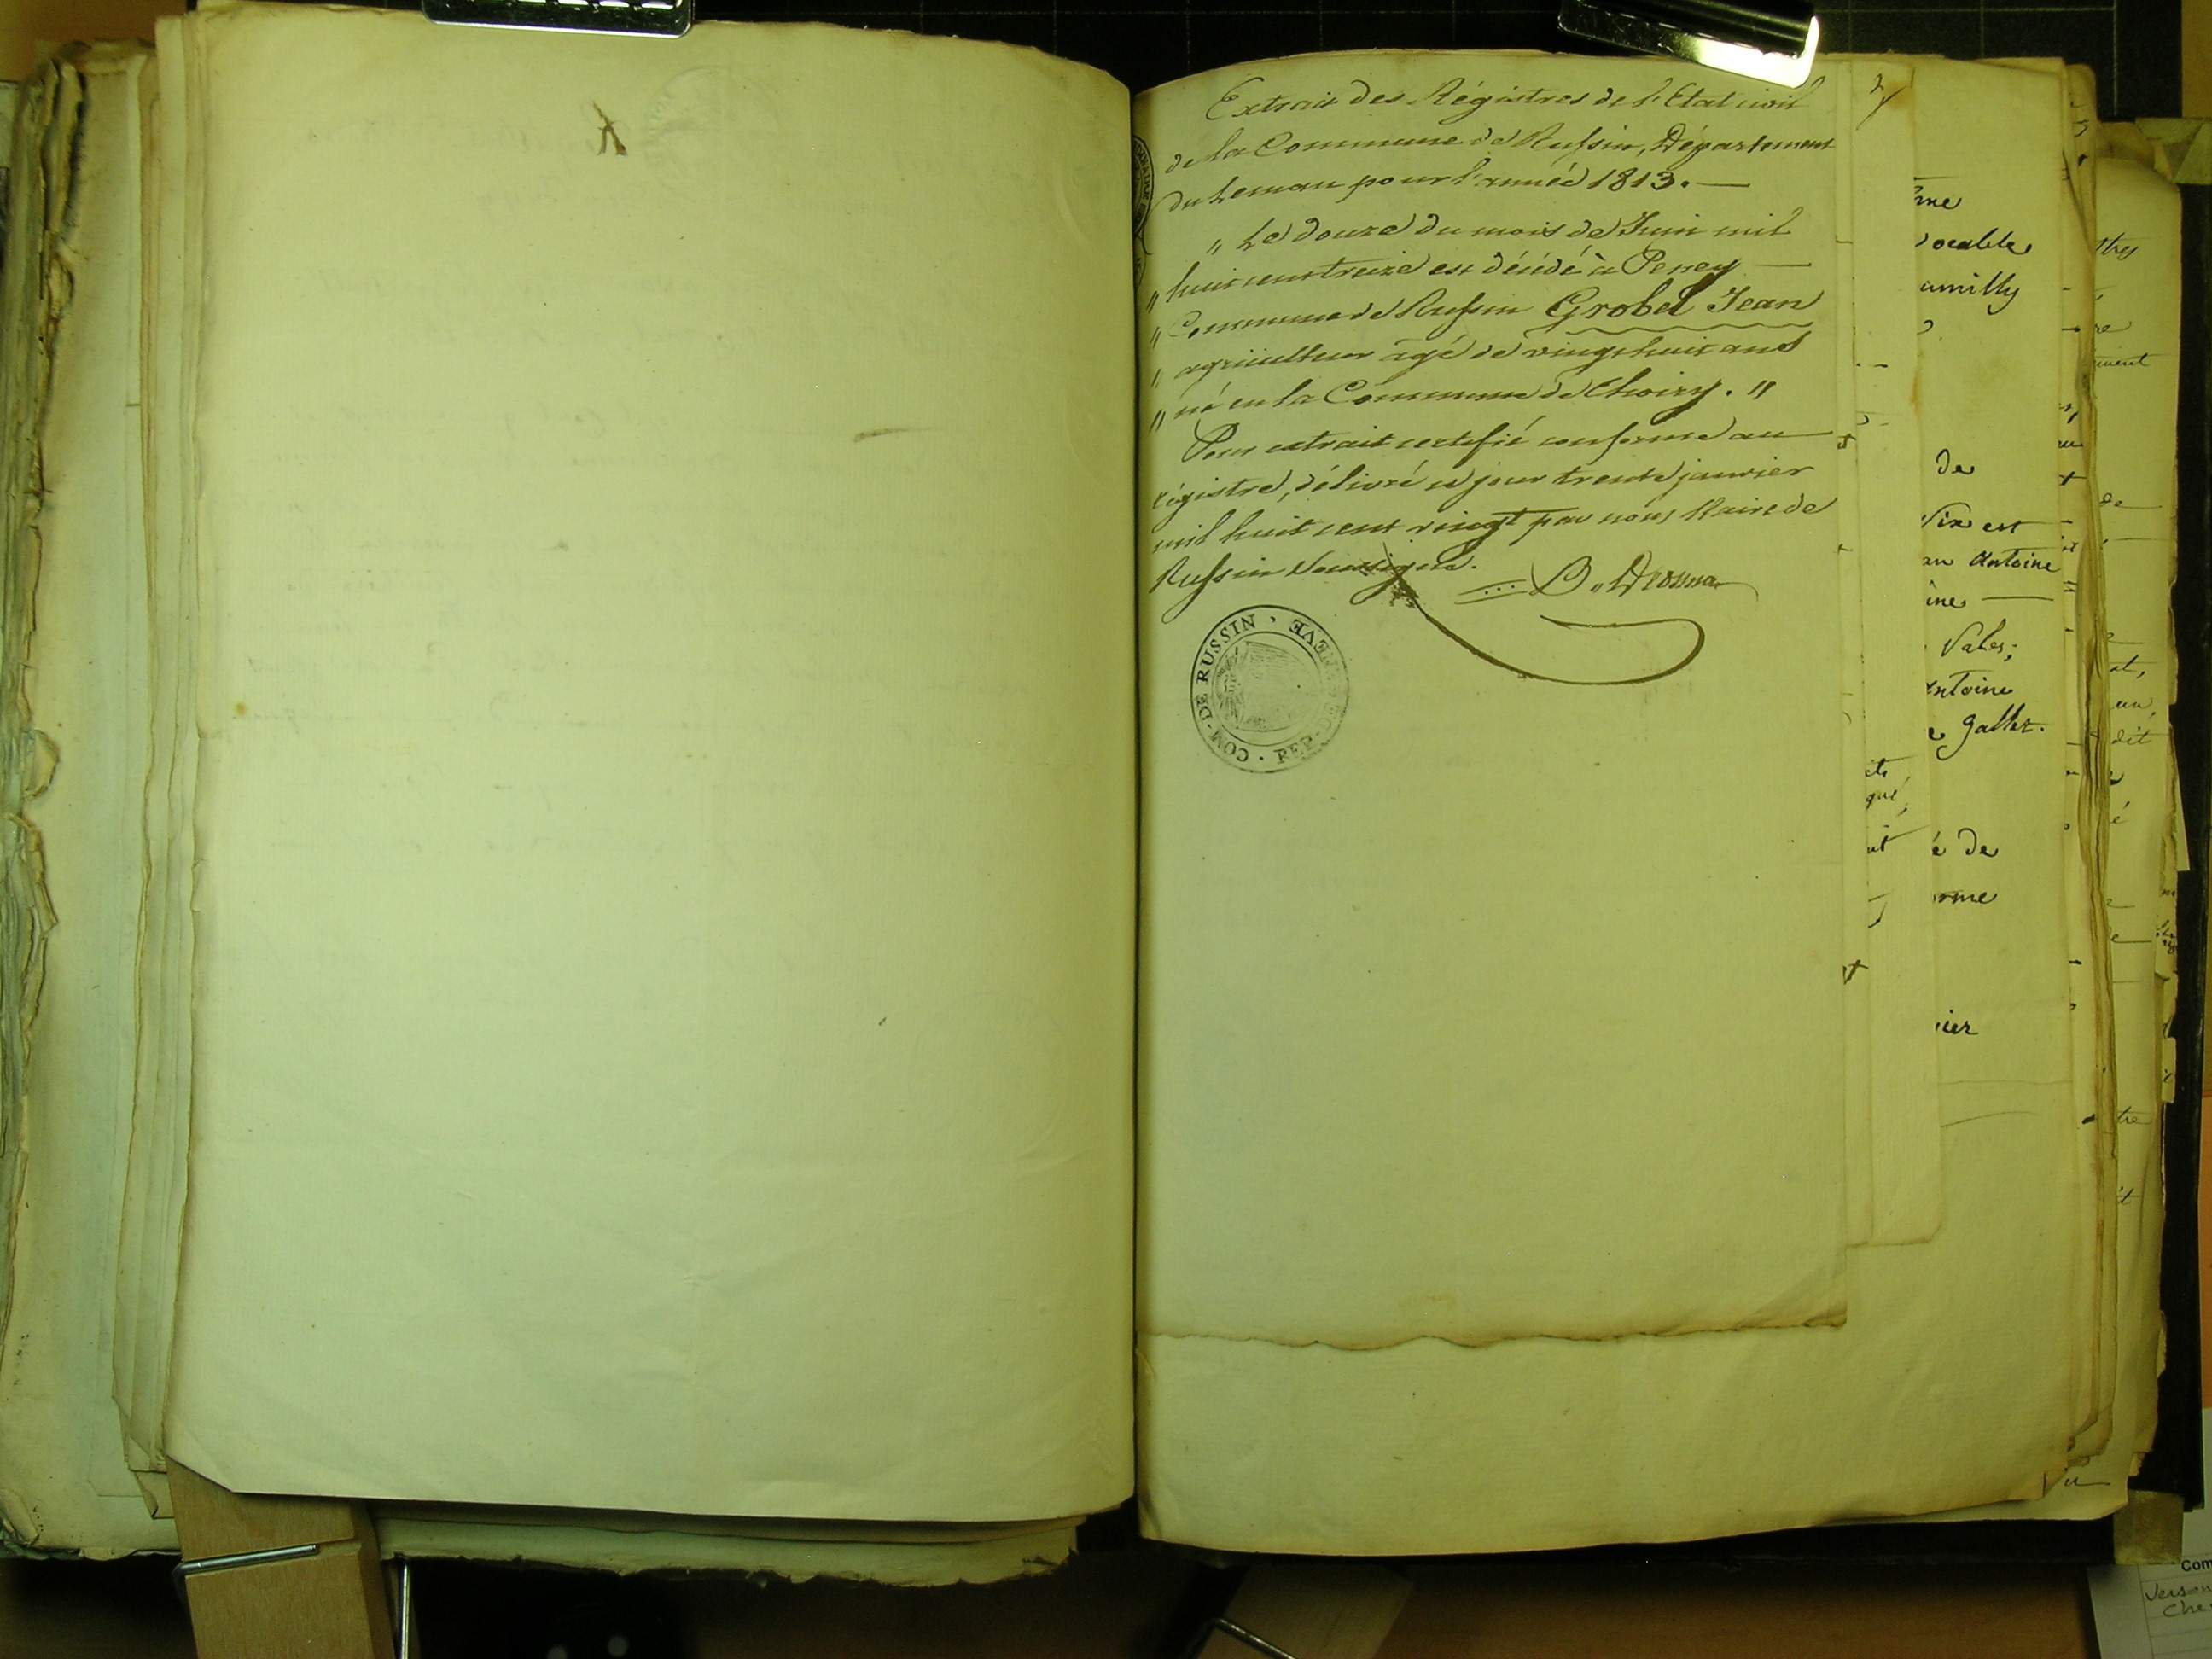 Extrait des Régistres de l'Etat civil
de la Commune de Russin, Département
du Leman pour l'année 1813. —
" Le douze du mois de Juin mil
" huit cent treize est décédé à Peney —
" Commune de Russin Grobel Jean
" agriculteur agé de vingt huit ans
" né en la Commune de Choisy. "
Pour extrait certifié conforme au
régistre, délivré ce jour trente janvier
mil huit cent vingt par nous Maire de
Russin soussigné.
COM · DE RUSSIN · REP · DE GENEVE
me
ocable
umilly
de
est
an Antoine
ine
Vales;
ntoine
Gallet.
é de
rme
ier
de
dit
tre
Com